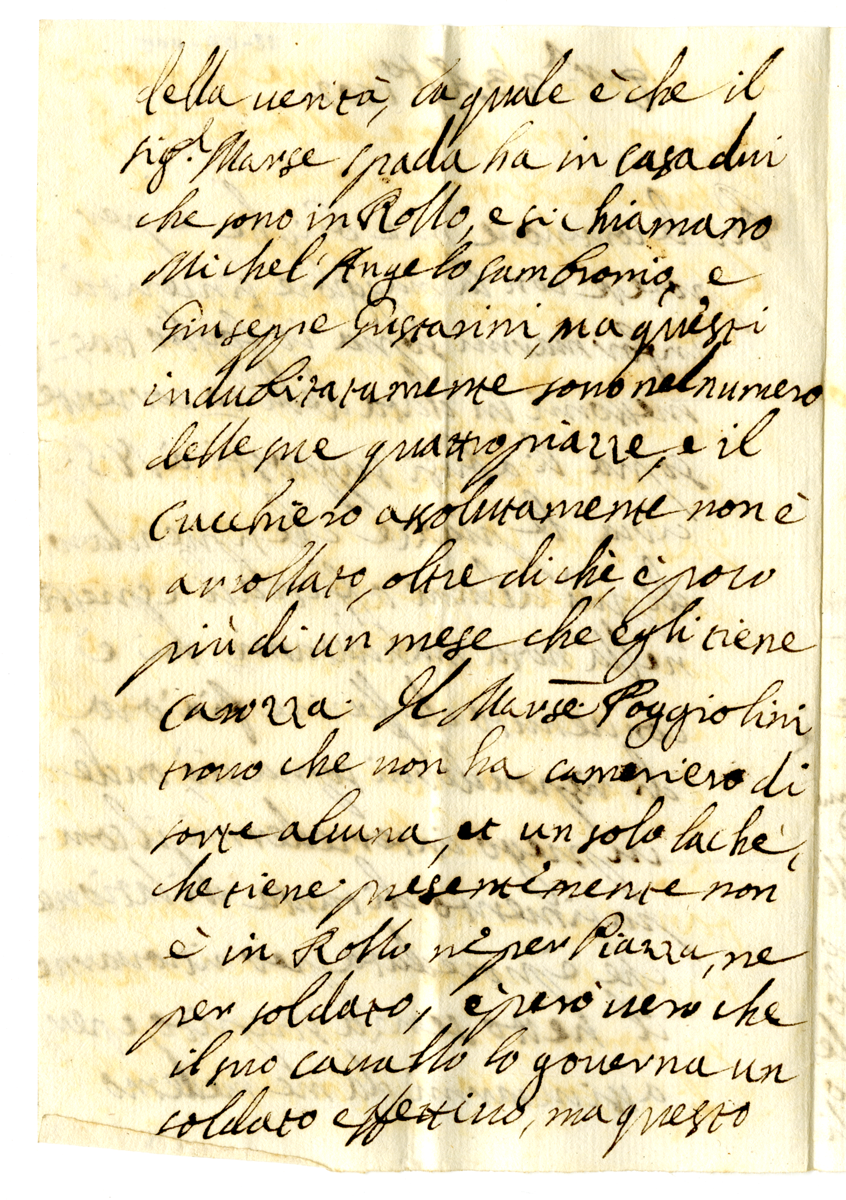 della uerità, la quale è che il
sig.r Marse Spada ha in casa dui
che sono in Rollo, e si chiamano
Michel' Angelo Sambronio, e
Giuseppe Gustarini, ma questi
indubitatamente sono nel numero
delle sue quattro piazze, e il
Cucchiero assolutamente non è
arrollato, oltre di chè, è poco
più di un mese che egli tiene
Carozza. Il Marse. Poggiolini
trouo che non ha cameriero di
sorte alcuna, et un solo lachè,
che tiene presentimente non
è in Rollo nè per Piazza, ne
per soldato, è però uero che
il suo cauallo lo gouerna un
soldato effettiuo, ma questo